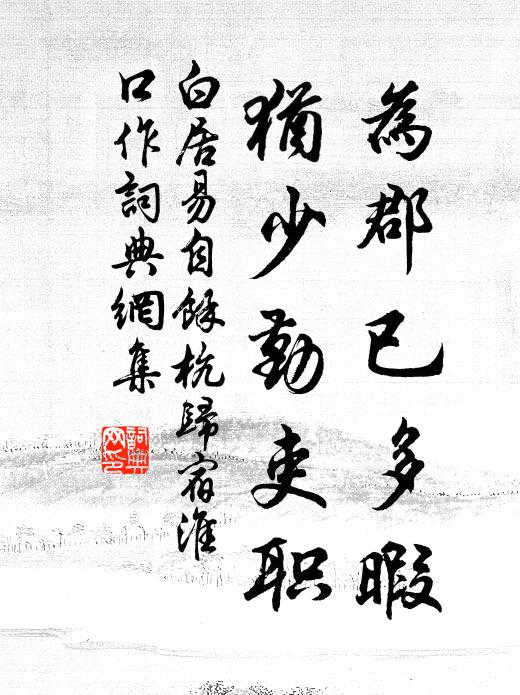 為郡已多暇
猶少勤吏职
白居易自餘杭歸宿淮
口作詞典網集
詞典
网印